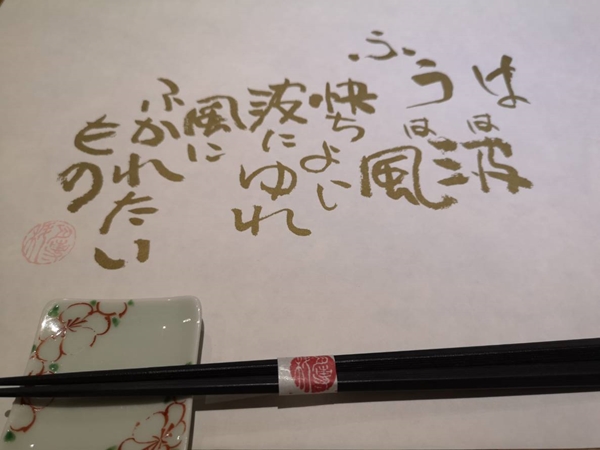 はは波
ふうは風
快ちよい
波にゆれ
風に
ふかれたい
もの